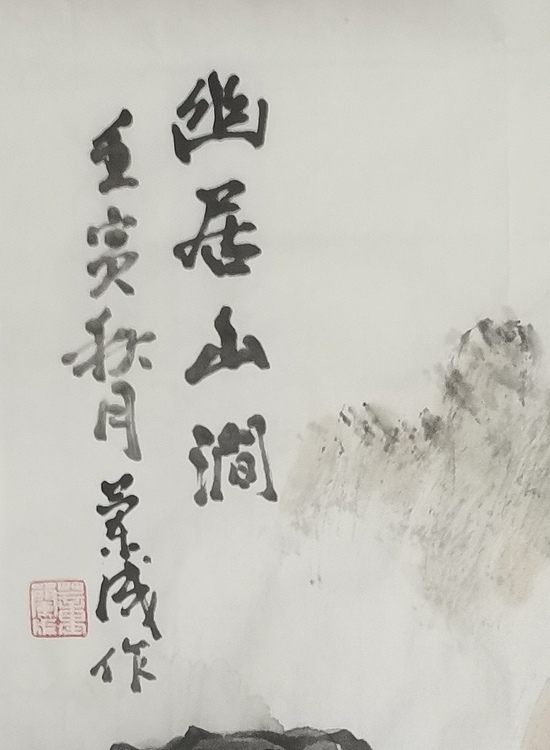 幽居山澗
壬寅秋月荣成作